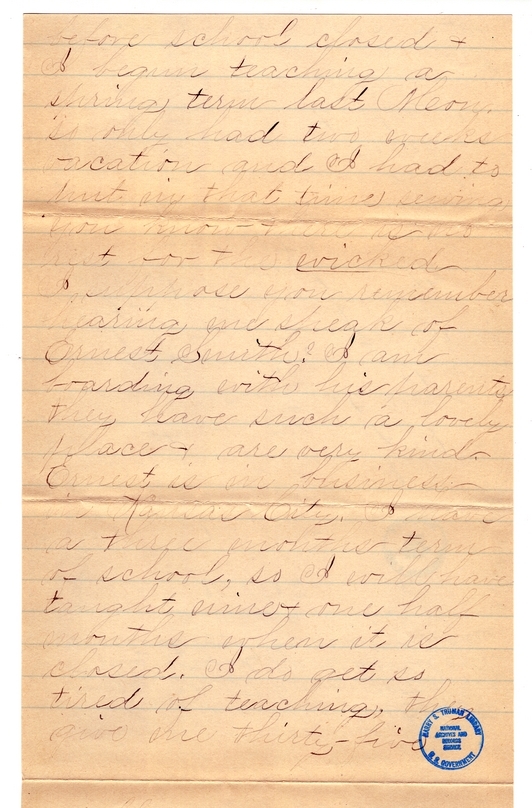 before school closed +
I begun teaching a
spring term last Mon.
so only had two weeks
vacation and I had to
put in that time sewing
you know there is no
rest for the wicked
I suppose you remember
hearing me speak of
Ernest Smith? I am
boarding with his parents
they have such a lovely
place + are very kind.
Ernest is in business
in Kansas City. I have
a three months term
of school, so I will have
taught nine + one half
months when it is
closed. I do get so
tired of teaching. they
give me thirty-five
HARRY S. TRUMAN LIBRARY
NATIONAL
ARCHIVES AND
RECORDS
SERVICE
U.S. GOVERNMENT